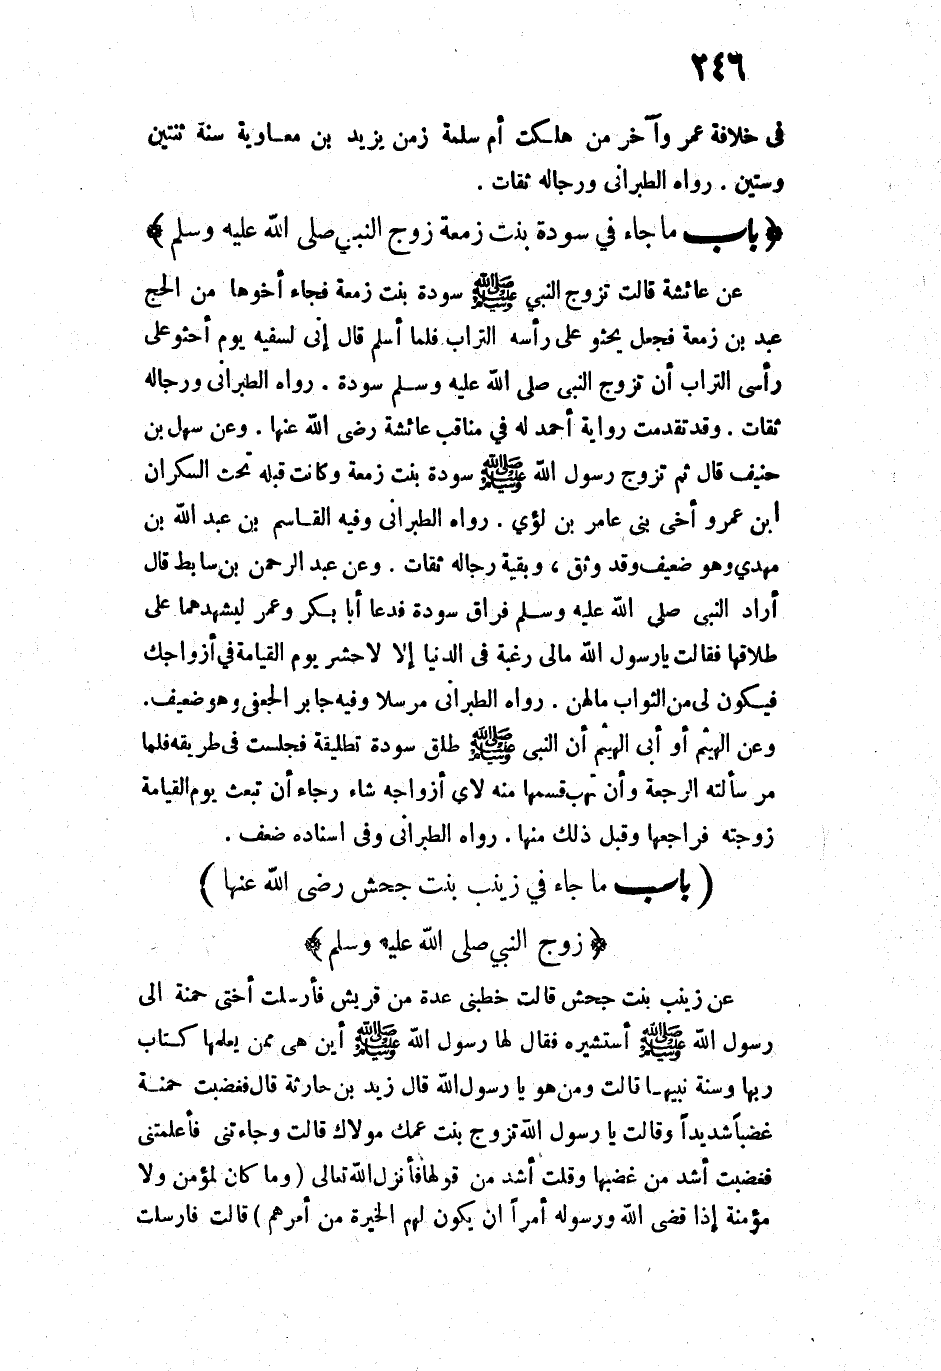 ٢٤٦
فى خلافة عمر وآخر من هلكت أم سلمة زمن يزيد بن معاوية سنة ثنتين
وستين . رواه الطبرانى ورجاله ثقات .
﴿ باب ما جاء في سودة بنت زمعة زوج النبي صلى الله عليه وسلم ﴾
عن عائشة قالت تزوج النبي ﷺ سودة بنت زمعة فجاء أخوها من الحج
عبد بن زمعة فجعل يحثو على رأسه التراب فلما أسلم قال إنى لسفيه يوم أحثو على
رأسى التراب أن تزوج النبى صلى الله عليه وسلم سودة . رواه الطبرانى ورجاله
ثقات . وقد تقدمت رواية أحمد له في مناقب عائشة رضى الله عنها . وعن سهل بن
حنيف قال ثم تزوج رسول الله ﷺ سودة بنت زمعة وكانت قبله تحت السكران
ابن عمرو أخى بنى عامر بن لؤي . رواه الطبرانى وفيه القاسم بن عبد الله بن
مهدي وهو ضعيف وقد وثق ، وبقية رجاله ثقات . وعن عبد الرحمن بن سابط قال
أراد النبى صلى الله عليه وسلم فراق سودة فدعا أبا بكر وعمر ليشهدهما على
طلاقها فقالت يارسول الله مالى رغبة فى الدنيا إلا لاحشر يوم القيامة في أزواجك
فيكون لى من الثواب مالهن . رواه الطبرانى مرسلا وفيه جابر الجعفى وهو ضعيف.
وعن الهيثم أو أبى الهيثم أن النبى ﷺ طلق سودة تطليقة فجلست فى طريقه فلما
مر سألته الرجعة وأن تهب قسمها منه لاي أزواجه شاء رجاء أن تبعث يوم القيامة
زوجته فراجعها وقبل ذلك منها . رواه الطبرانى وفى اسناده ضعف .
( باب ما جاء في زينب بنت جحش رضى الله عنها )
﴿ زوج النبي صلى الله عليه وسلم ﴾
عن زينب بنت جحش قالت خطبنى عدة من قريش فأرسلت أختى حمنة الى
رسول الله ﷺ أستشيره فقال لها رسول الله ﷺ أين هى ممن يعلمها كتاب
ربها وسنة نبيها قالت ومن هو يا رسول الله قال زيد بن حارثة قال فغضبت حمنة
غضباً شديداً وقالت يا رسول الله تزوج بنت عمك مولاك قالت وجاءتنى فأعلمتنى
فغضبت أشد من غضبها وقلت أشد من قولها فأنزل الله تعالى ( وما كان لمؤمن ولا
مؤمنة إذا قضى الله ورسوله أمراً ان يكون لهم الخيرة من أمرهم ) قالت فارسلت